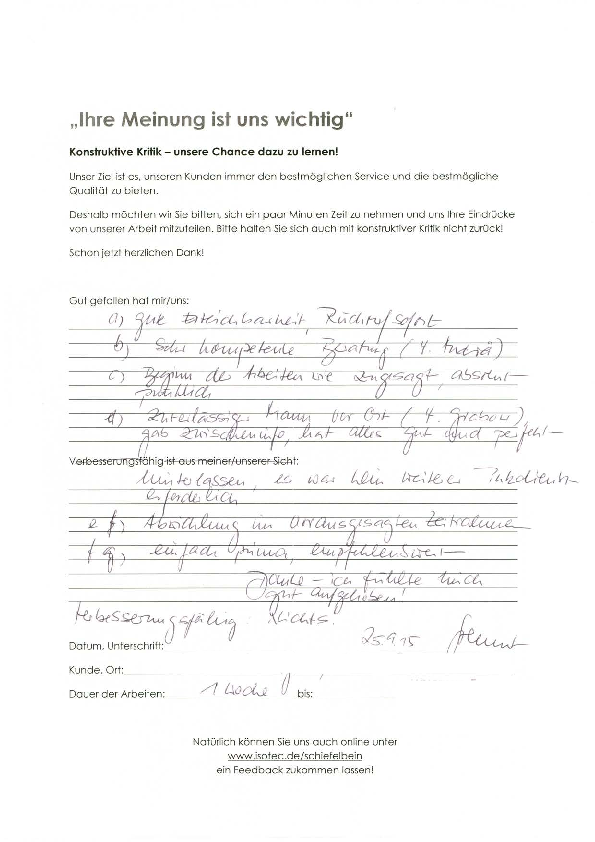 „Ihre Meinung ist uns wichtig“
Konstruktive Kritik – unsere Chance dazu zu lernen!
Unser Ziel ist es, unseren Kunden immer den bestmöglichen Service und die bestmögliche
Qualität zu bieten.
Deshalb möchten wir Sie bitten, sich ein paar Minuten Zeit zu nehmen und uns Ihre Eindrücke
von unserer Arbeit mitzuteilen. Bitte halten Sie sich auch mit konstruktiver Kritik nicht zurück!
Schon jetzt herzlichen Dank!
Gut gefallen hat mir/uns:
a) gute Erreichbarkeit, Rückruf sofort
b) Sehr kompetente Beratung (H.
c) Beginn der Arbeiten wie zugesagt, absolut
pünktlich
d) Zuverlässiger Mann vor Ort (H.
gab Zwischeninfo, hat alles gut und perfekt
Verbesserungsfähig ist aus meiner/unserer Sicht:
hinterlassen, es war kein weiterer
erforderlich
e) Abwicklung im vorausgesagten Zeitrahmen
f) einfach prima, empfehlenswert
Danke – ich fühlte mich
gut aufgehoben!
Verbesserungsfähig: Nichts.
Datum, Unterschrift: 25.9.15
Kunde, Ort:
Dauer der Arbeiten: 1 Woche bis:
Natürlich können Sie uns auch online unter
www.isotec.de/schiefelbein
ein Feedback zukommen lassen!